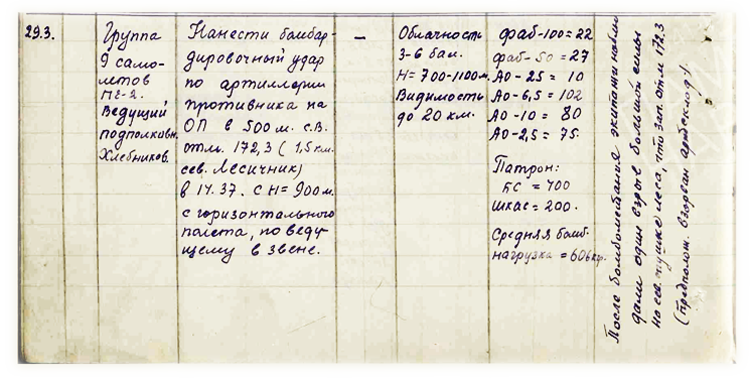 29.3.
Группа
9 само-
летов
Пе-2.
Ведущий
подполковн.
Хлебников.
Нанести бомбар-
дировочный удар
по артиллерии
противника на
ОП в 500 м. с.в.
отм. 172,3 (1,5 км.
сев. Лесичник)
в 17.37. с Н= 900 м.
с горизонтального
полета, по веду-
щему в звене.
—
Облачность
3-6 бал.
Н= 700-1100 м.
Видимость
до 20 км.
фаб-100= 22
фаб-50 = 27
АО-25 = 10
АО-6,5 = 102
АО-10 = 80
АО-2,5 = 75.
Патрон:
БС = 400
Шкас = 200.
Средняя бомб.
нагрузка = 606 кгр.
После бомбометания экипажи наблю
дали один взрыв большой силы
на сев. опушке леса, что зап. отм 172.3
(предполож. взорван артсклад).